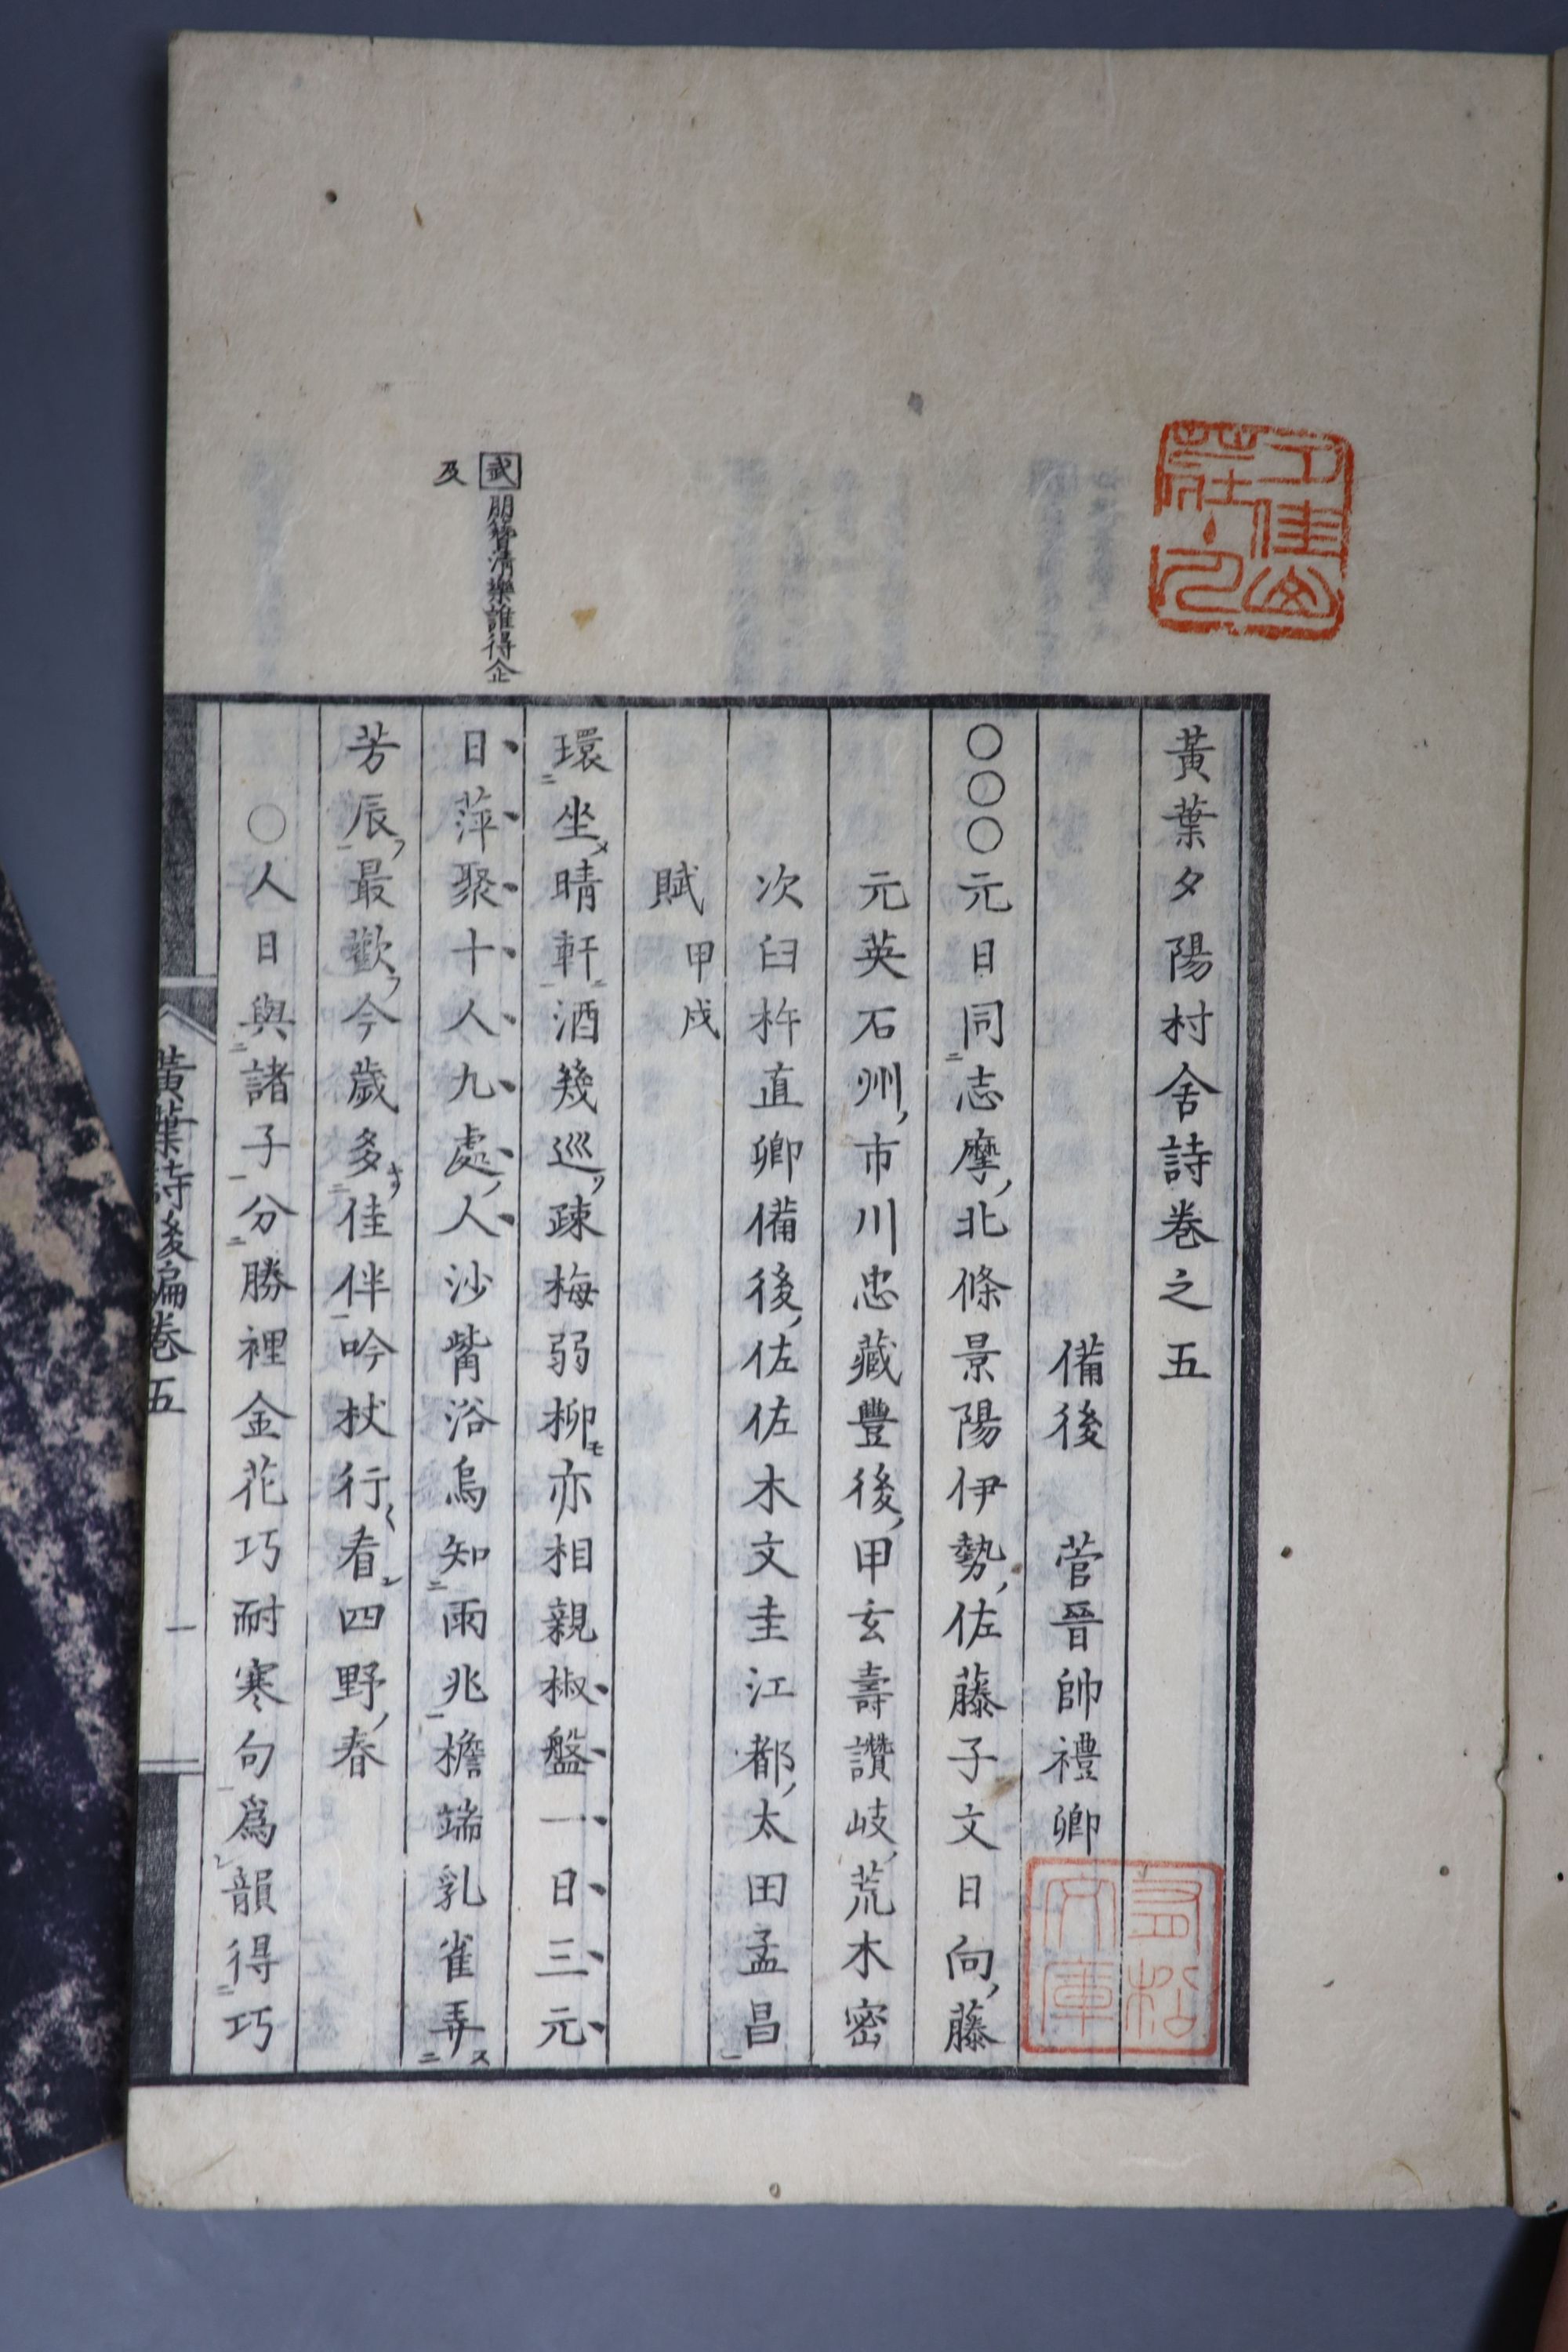 黃葉夕陽村舍詩卷之五
備後 菅晉帥禮卿
〇〇〇元日同志摩北條景陽伊勢佐藤子文日向藤
元英石州市川忠藏豐後甲玄壽讚岐荒木密
次臼杵直卿備後佐佐木文圭江都太田孟昌
賦 甲戌
環坐晴軒酒幾巡疎梅弱柳亦相親椒盤一日三元
日萍聚十人九處人沙觜浴鳥知雨兆檐端乳雀弄
芳辰最歡今歲多佳伴吟杖行看四野春
〇人日與諸子分勝裡金花巧耐寒句爲韻得巧
武 朋簪清樂誰得企
及
黃葉詩後編卷五
一